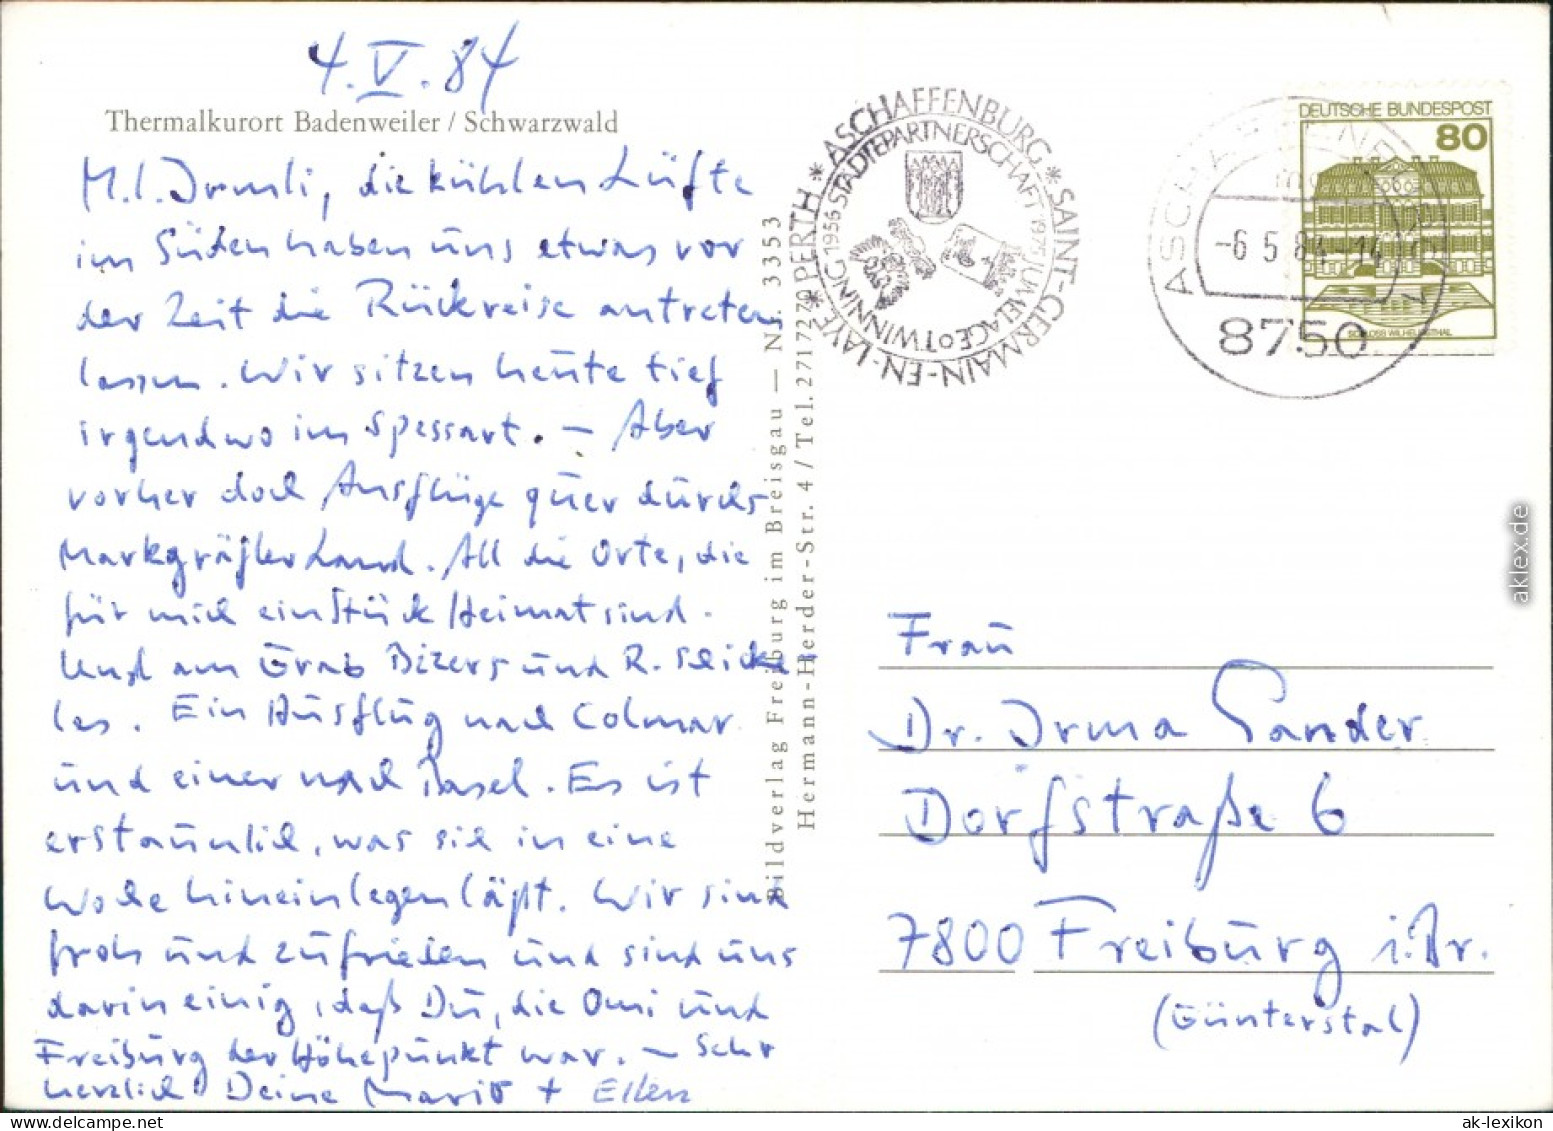 4.V.84
Thermalkurort Badenweiler / Schwarzwald
M.l. Irmli, die kühlen Lüfte
im Süden haben uns etwas vor
der Zeit die Rückreise antreten
lassen. Wir sitzen heute tief
irgendwo im Spessart. – Aber
vorher doch Ausflüge quer durchs
Markgräfler Land. All die Orte, die
für mich ein Stück Heimat sind.
Und am Grab Bizers und R. Schicke-
les. Ein Ausflug nach Colmar
und einer nach Basel. Es ist
erstaunlich, was sich in eine
Woche hineinlegen läßt. Wir sind
froh und zufrieden und sind uns
darin einig, daß Du, die Omi und
Freiburg der Höhepunkt war. – Sehr
herzlich Deine Mario + Ellen
Bildverlag Freiburg im Breisgau — Nr. 3353
Hermann-Herder-Str. 4 / Tel. 2717270
* ASCHAFFENBURG * SAINT-GERMAIN-EN-LAYE * PERTH
1956 STÄDTEPARTNERSCHAFT 1975 JUMELAGE TWINNING
ASCHAFFENBURG
-6.5.84-14
8750
DEUTSCHE BUNDESPOST
80
SCHLOSS WILHELMSTHAL
Frau
Dr. Irma Sander
Dorfstraße 6
7800 Freiburg i. Br.
(Günterstal)
aklex.de
ak-lexikon